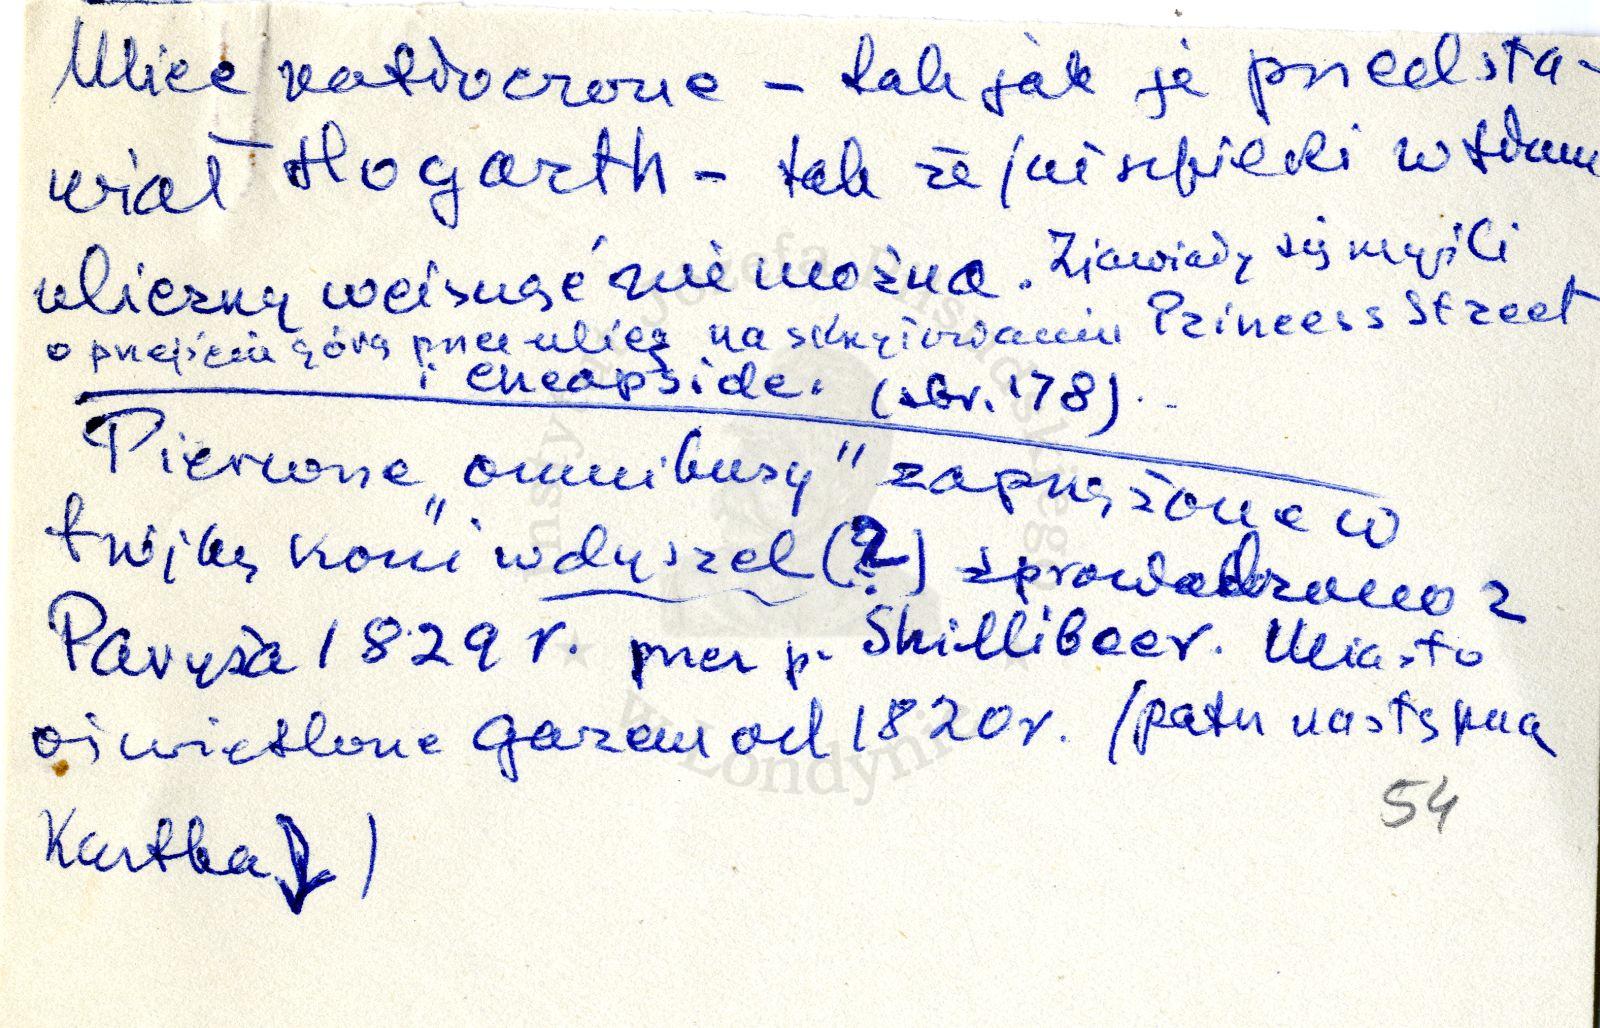 Ulice zatłoczone – tak jak je przedsta-
wiał Hogarth – tak że /ani szpilki w tłum
uliczny wcisnąć nie można. Zjawiały się myśli
o przejściu górą przez ulicę na skrzyżowaniu Princess Street
i Cheapside. (str. 178)..
Pierwsze „omnibusy" zaprzężone w
trójkę koni w dyszel (?) sprowadzono z
Paryża 1829 r. przez p. Shillibeer. Miasto
oświetlone gazem od 1820 r. /patrz następna
54
Kartka ↓ )
Instytut Józefa Piłsudskiego
w Londynie